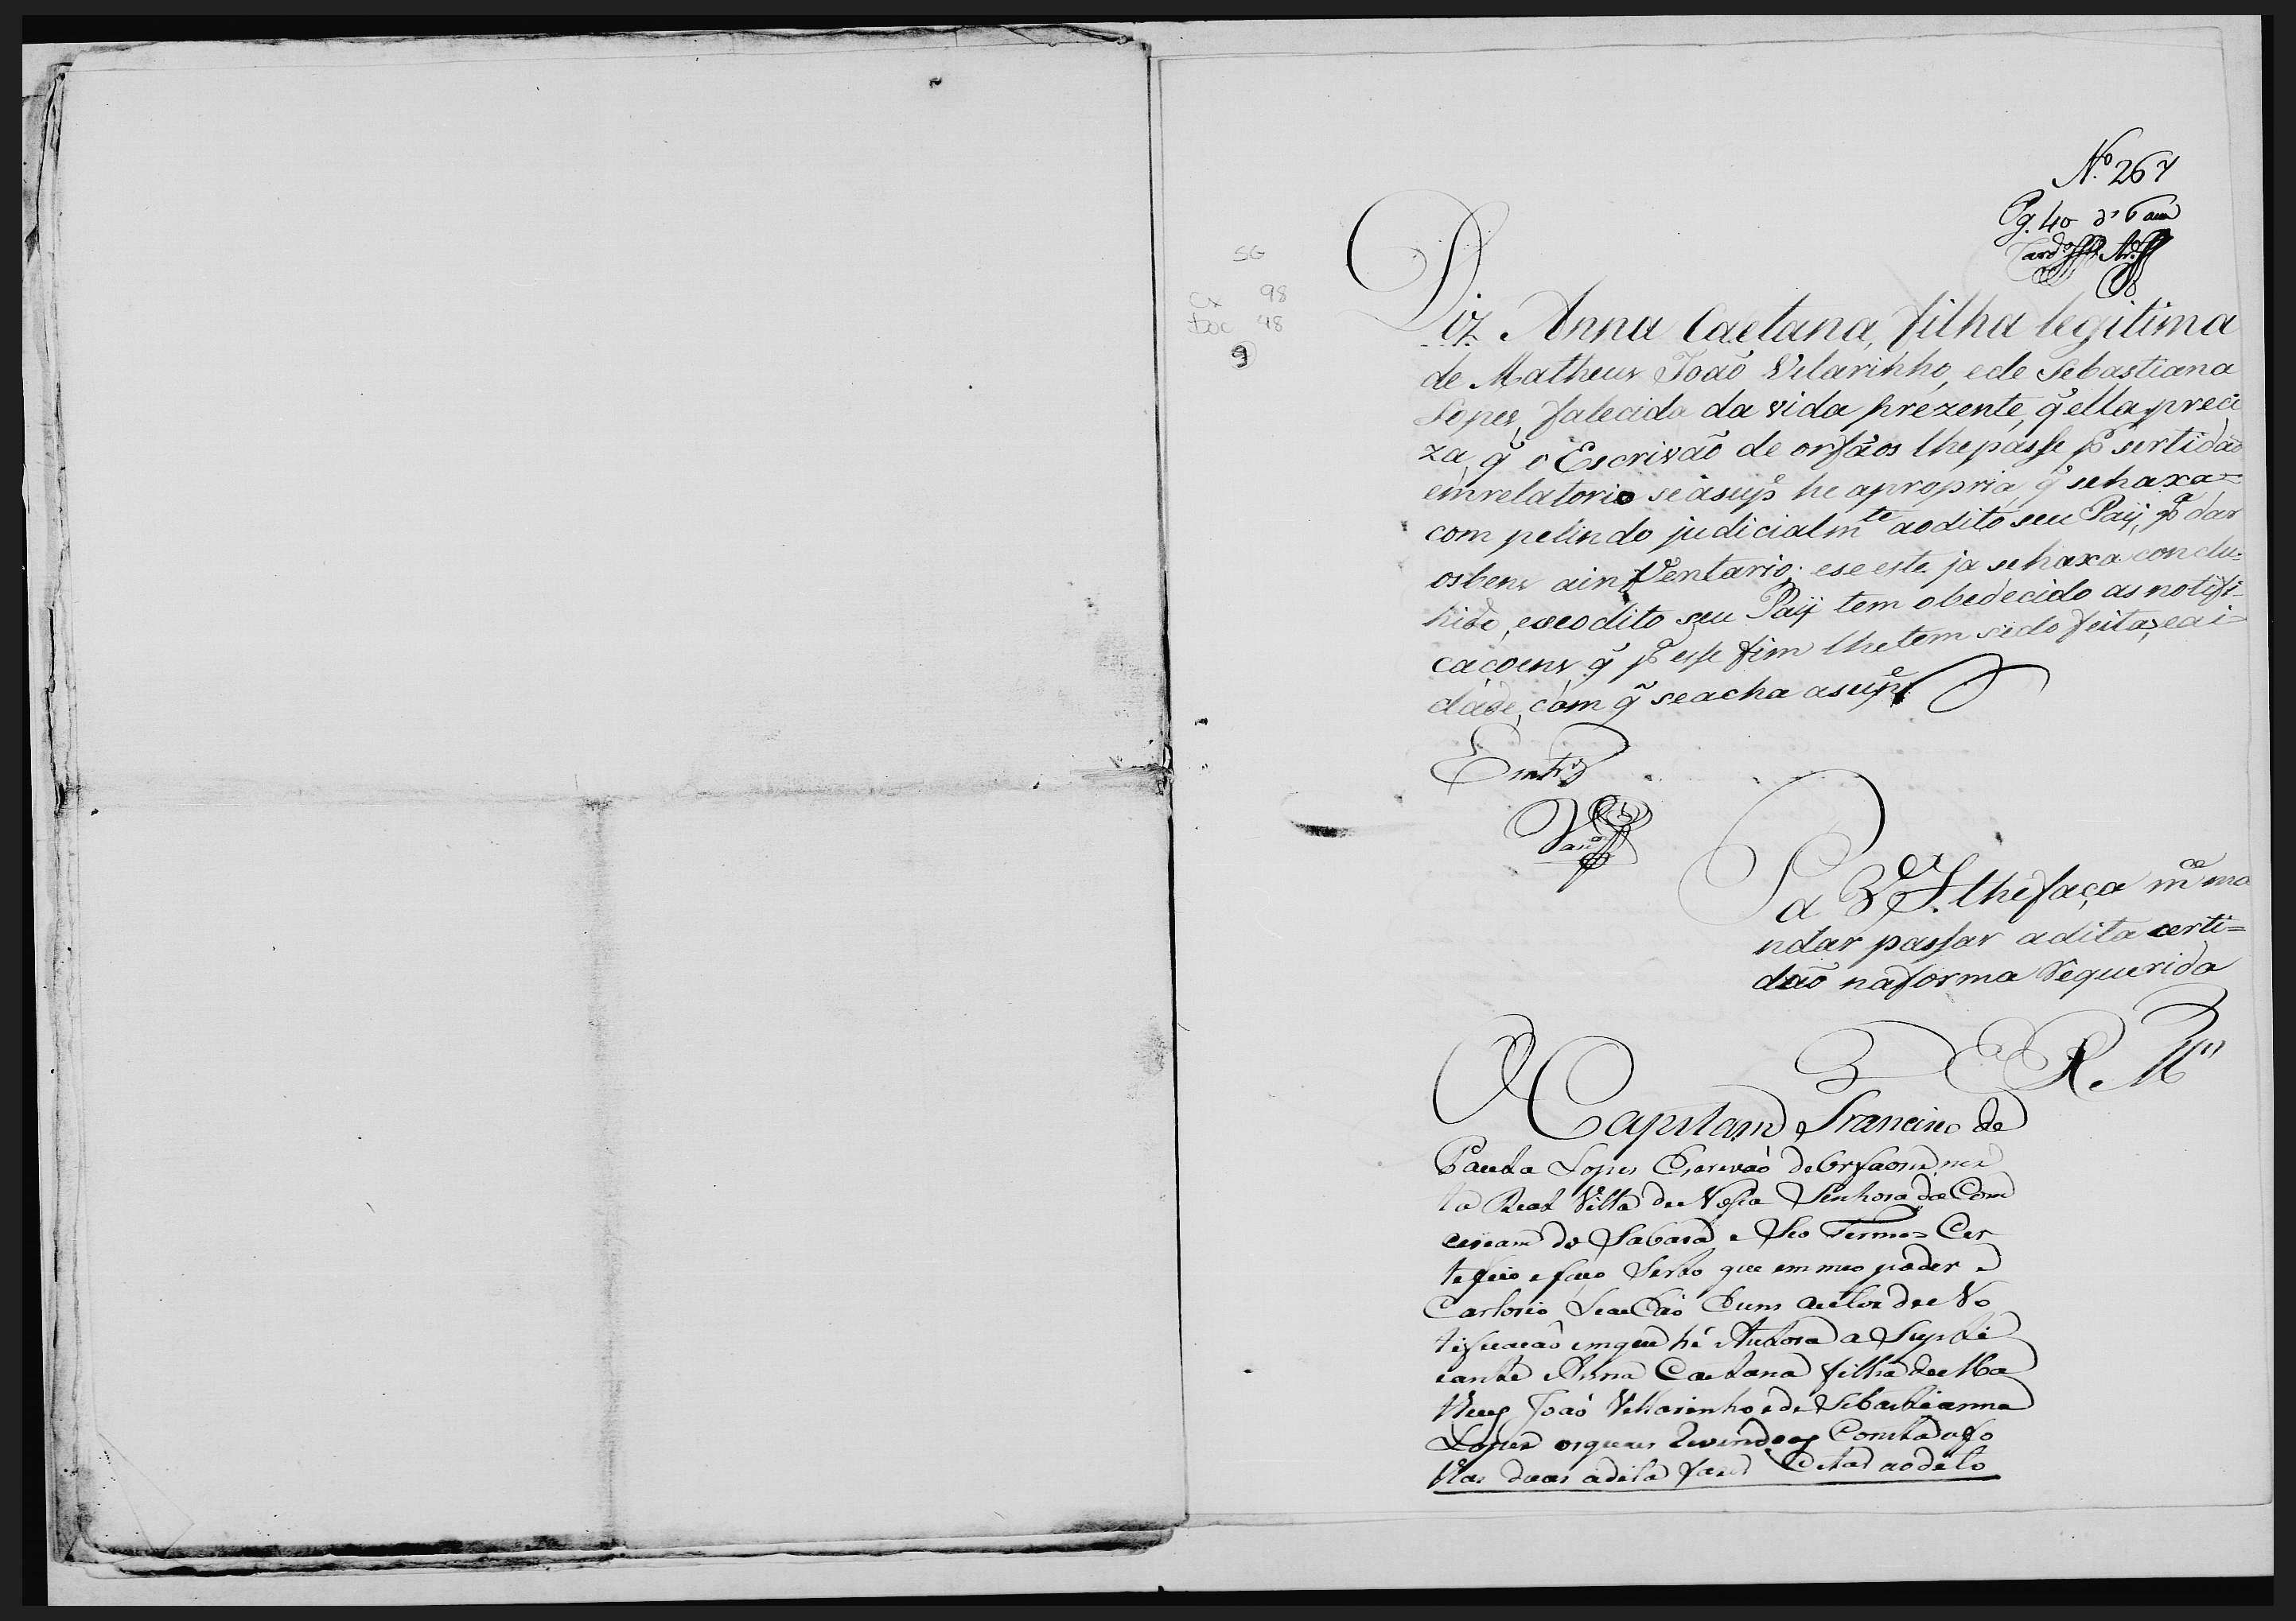 SG
Cx 98
Doc 48
9
Nº 267
Pg. 40 rs
Diz Anna Caetana, filha legitima
de Matheus João Vilarinho, e de Sebastiana
Lopes, falecida da vida prezente, q̃ ella preci
za, q̃ o Escrivão de orfãos lhe passe pͦ sertidão
em relatorio se a supͤ he apropria q̃ se haxa=
com pelindo judicialmͭͤ ao dito seu Paÿ, pͣ dar
os bens a inVentario; e se este ja se haxa conclu=
hido, e se o dito seu Paÿ tem obedecido as notifi-
caçoens q̃ pͣ esse fim lhe tem sido feitas, e a i=
dade, com q̃ se acha a supͤ
Pa V. S. lhe faça mͨͤ ma
ndar passar a dita certi=
dão na forma Requerida
E R Mͨͤ
O Capitam Francisco de
Paula Lopes Escrivão de Orfaons nes
ta Real Villa de Nossa Senhora da Com
ceicam do Sabará e Seo Termo= Cer
tefico e faço Serto que em meo poder e
Cartorio Se achão huns autos de No
tificacaõ em que hé Authora a Supli
cante Anna Caetana filha de Ma
theus Joaõ Villarinho e de Sebastianna
Lopes os quais Revendo os Consta a fo
lhas duas a dita fazer Citar ao dito